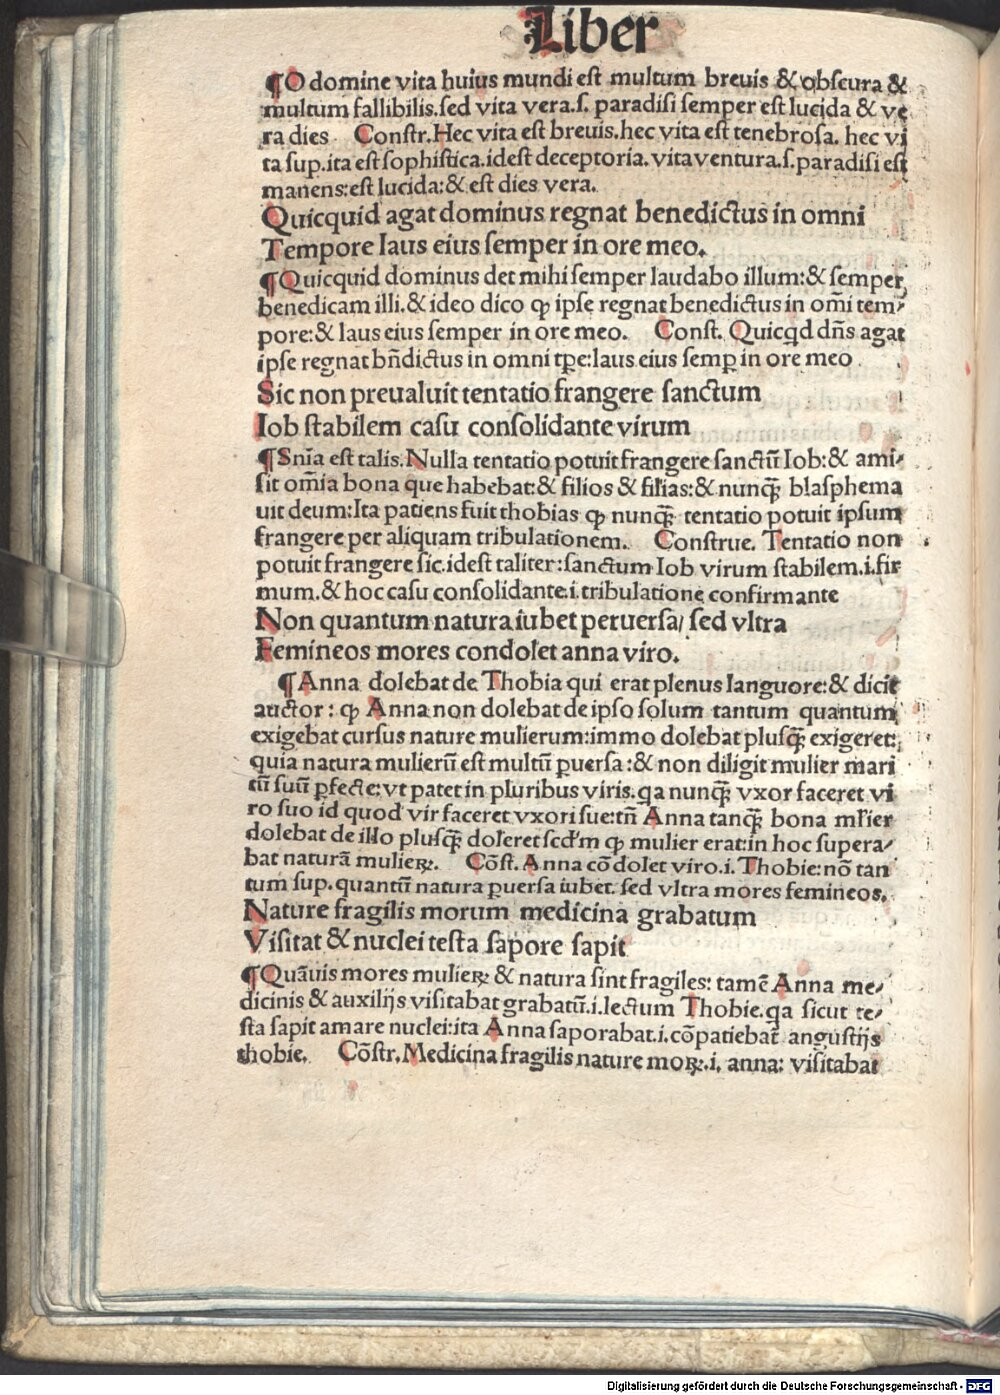 Liber
¶O domine vita huius mundi est multum breuis & obscura &
multum fallibilis.sed vita vera.s. paradisi semper est lucida & ve
ra dies Constr.Hec vita est breuis.hec vita est tenebrosa. hec vi
ta sup.ita est sophistica.idest deceptoria.vita ventura.s.paradisi est
manens:est lucida:& est dies vera.
Quicquid agat dominus regnat benedictus in omni
Tempore laus eius semper in ore meo.
¶Quicquid dominus det mihi semper laudabo illum:& semper
benedicam illi.& ideo dico ꝙ ipse regnat benedictus in om̄i tem⸗
pore:& laus eius semper in ore meo. Const. Quicq̇d dn̄s agat
ipse regnat bn̄dictus in omni tꝑe:laus eius semꝑ in ore meo
Sic non preualuit tentatio frangere sanctum
Iob stabilem casu consolidante virum
¶Snīa est talis.Nulla tentatio potuit frangere sanctū Iob:& ami⸗
sit om̄ia bona que habebat:& filios & filias:& nunq̄ʒ blasphema
uit deum:Ita patiens fuit thobias ꝙ nunq̄ʒ tentatio potuit ipsum
frangere per aliquam tribulationem. Construe. Tentatio non
potuit frangere sic.idest taliter:sanctum Iob virum stabilem.i.fir
mum.& hoc casu consolidante.i.tribulatione confirmante
Non quantum natura iubet peruersa/ sed vltra
Femineos mores condolet anna viro.
¶Anna dolebat de Thobia qui erat plenus languore:& dicit
auctor: ꝙ Anna non dolebat de ipso solum tantum quantum
exigebat cursus nature mulierum:immo dolebat plusq̄ʒ exigeret:
quia natura mulierū est multū ꝑuersa:& non diligit mulier mari
tū suū ꝑfecte:vt patet in pluribus viris.qa nunq̄ʒ vxor faceret vi
ro suo id quod vir faceret vxori sue:tn̄ Anna tanq̄ʒ bona ml̄ier
dolebat de illo plusq̄ʒ doleret scd'm ꝙ mulier erat:in hoc supera⸗
bat naturā mulieꝝ. Cōst. Anna cōdolet viro.i. Thobie:nō tan
tum sup.quantū natura ꝑuersa iubet. sed vltra mores femineos.
Nature fragilis morum medicina grabatum
Visitat & nuclei testa sapore sapit
¶Quāuis mores mulieꝝ & natura sint fragiles: tamē Anna me⸗
dicinis & auxilijs visitabat grabatū.i.lectum Thobie.qa sicut te⸗
sta sapit amare nuclei:ita Anna saporabat.i.cōpatiebat̄ angustijs
thobie. Cōstr.Medicina fragilis nature moꝝ.i. anna: visitabat
Digitalisierung gefördert durch die Deutsche Forschungsgemeinschaft - DFG